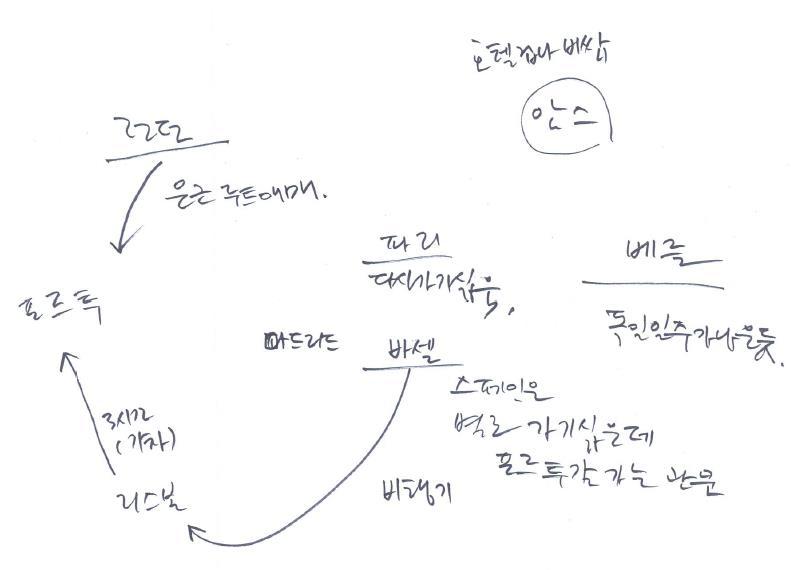 호텔 겁나 비쌈
암스
런던
은근 루트애매.
파리
다시가기싫음,
베를
독일일주가나을듯.
포르투
마드리드
바셀
스페인은
별로 가기싫은데
포르투갈 가는 관문
3시간
(기차)
비행기
리스본